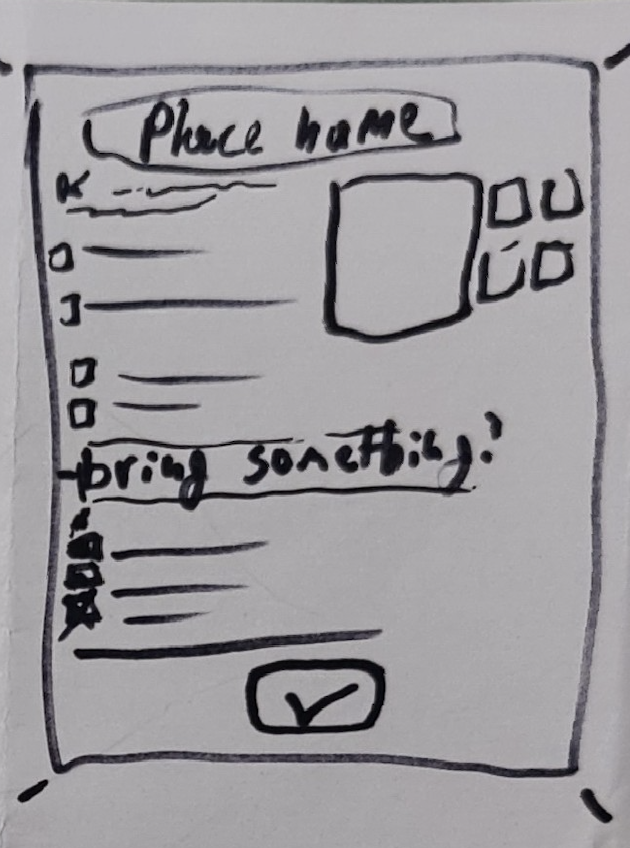 Place name
bring something?